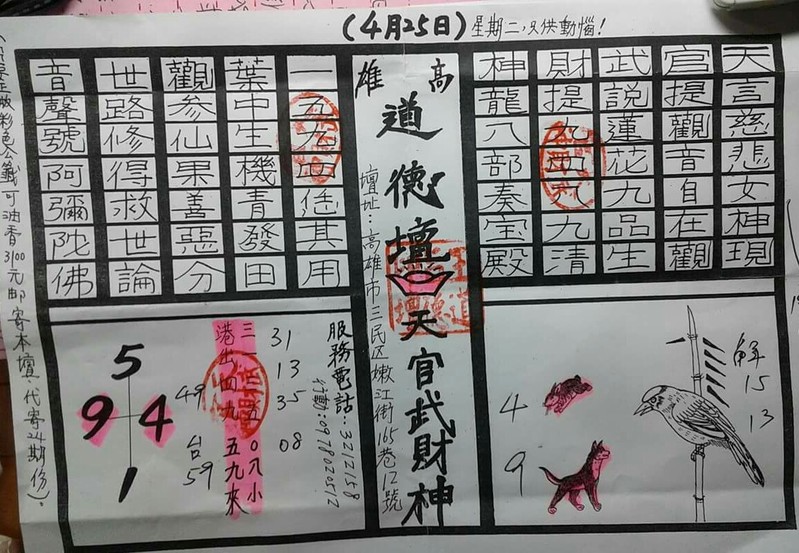 (4月25日)星期二,只供動惱!
高雄
道德壇天官武財神
壇址:高雄市三民区嫩江街165巷12號
天言慈悲女神現
官提觀音自在觀
武說蓮花九品生
財提九清
神龍八部奏宝殿
一恁其用
葉中生機青發田
觀參仙果善惡分
世路修得救世論
音聲號阿彌陀佛
解15 13
4
9
服務電話:3212158
行動:0978020512
31 13 35 08
三五〇八小
港出四九 五九來
49 台59
5
9 4
1
正版彩色公籤可油香3100元邮寄本壇.代寄24期份)。